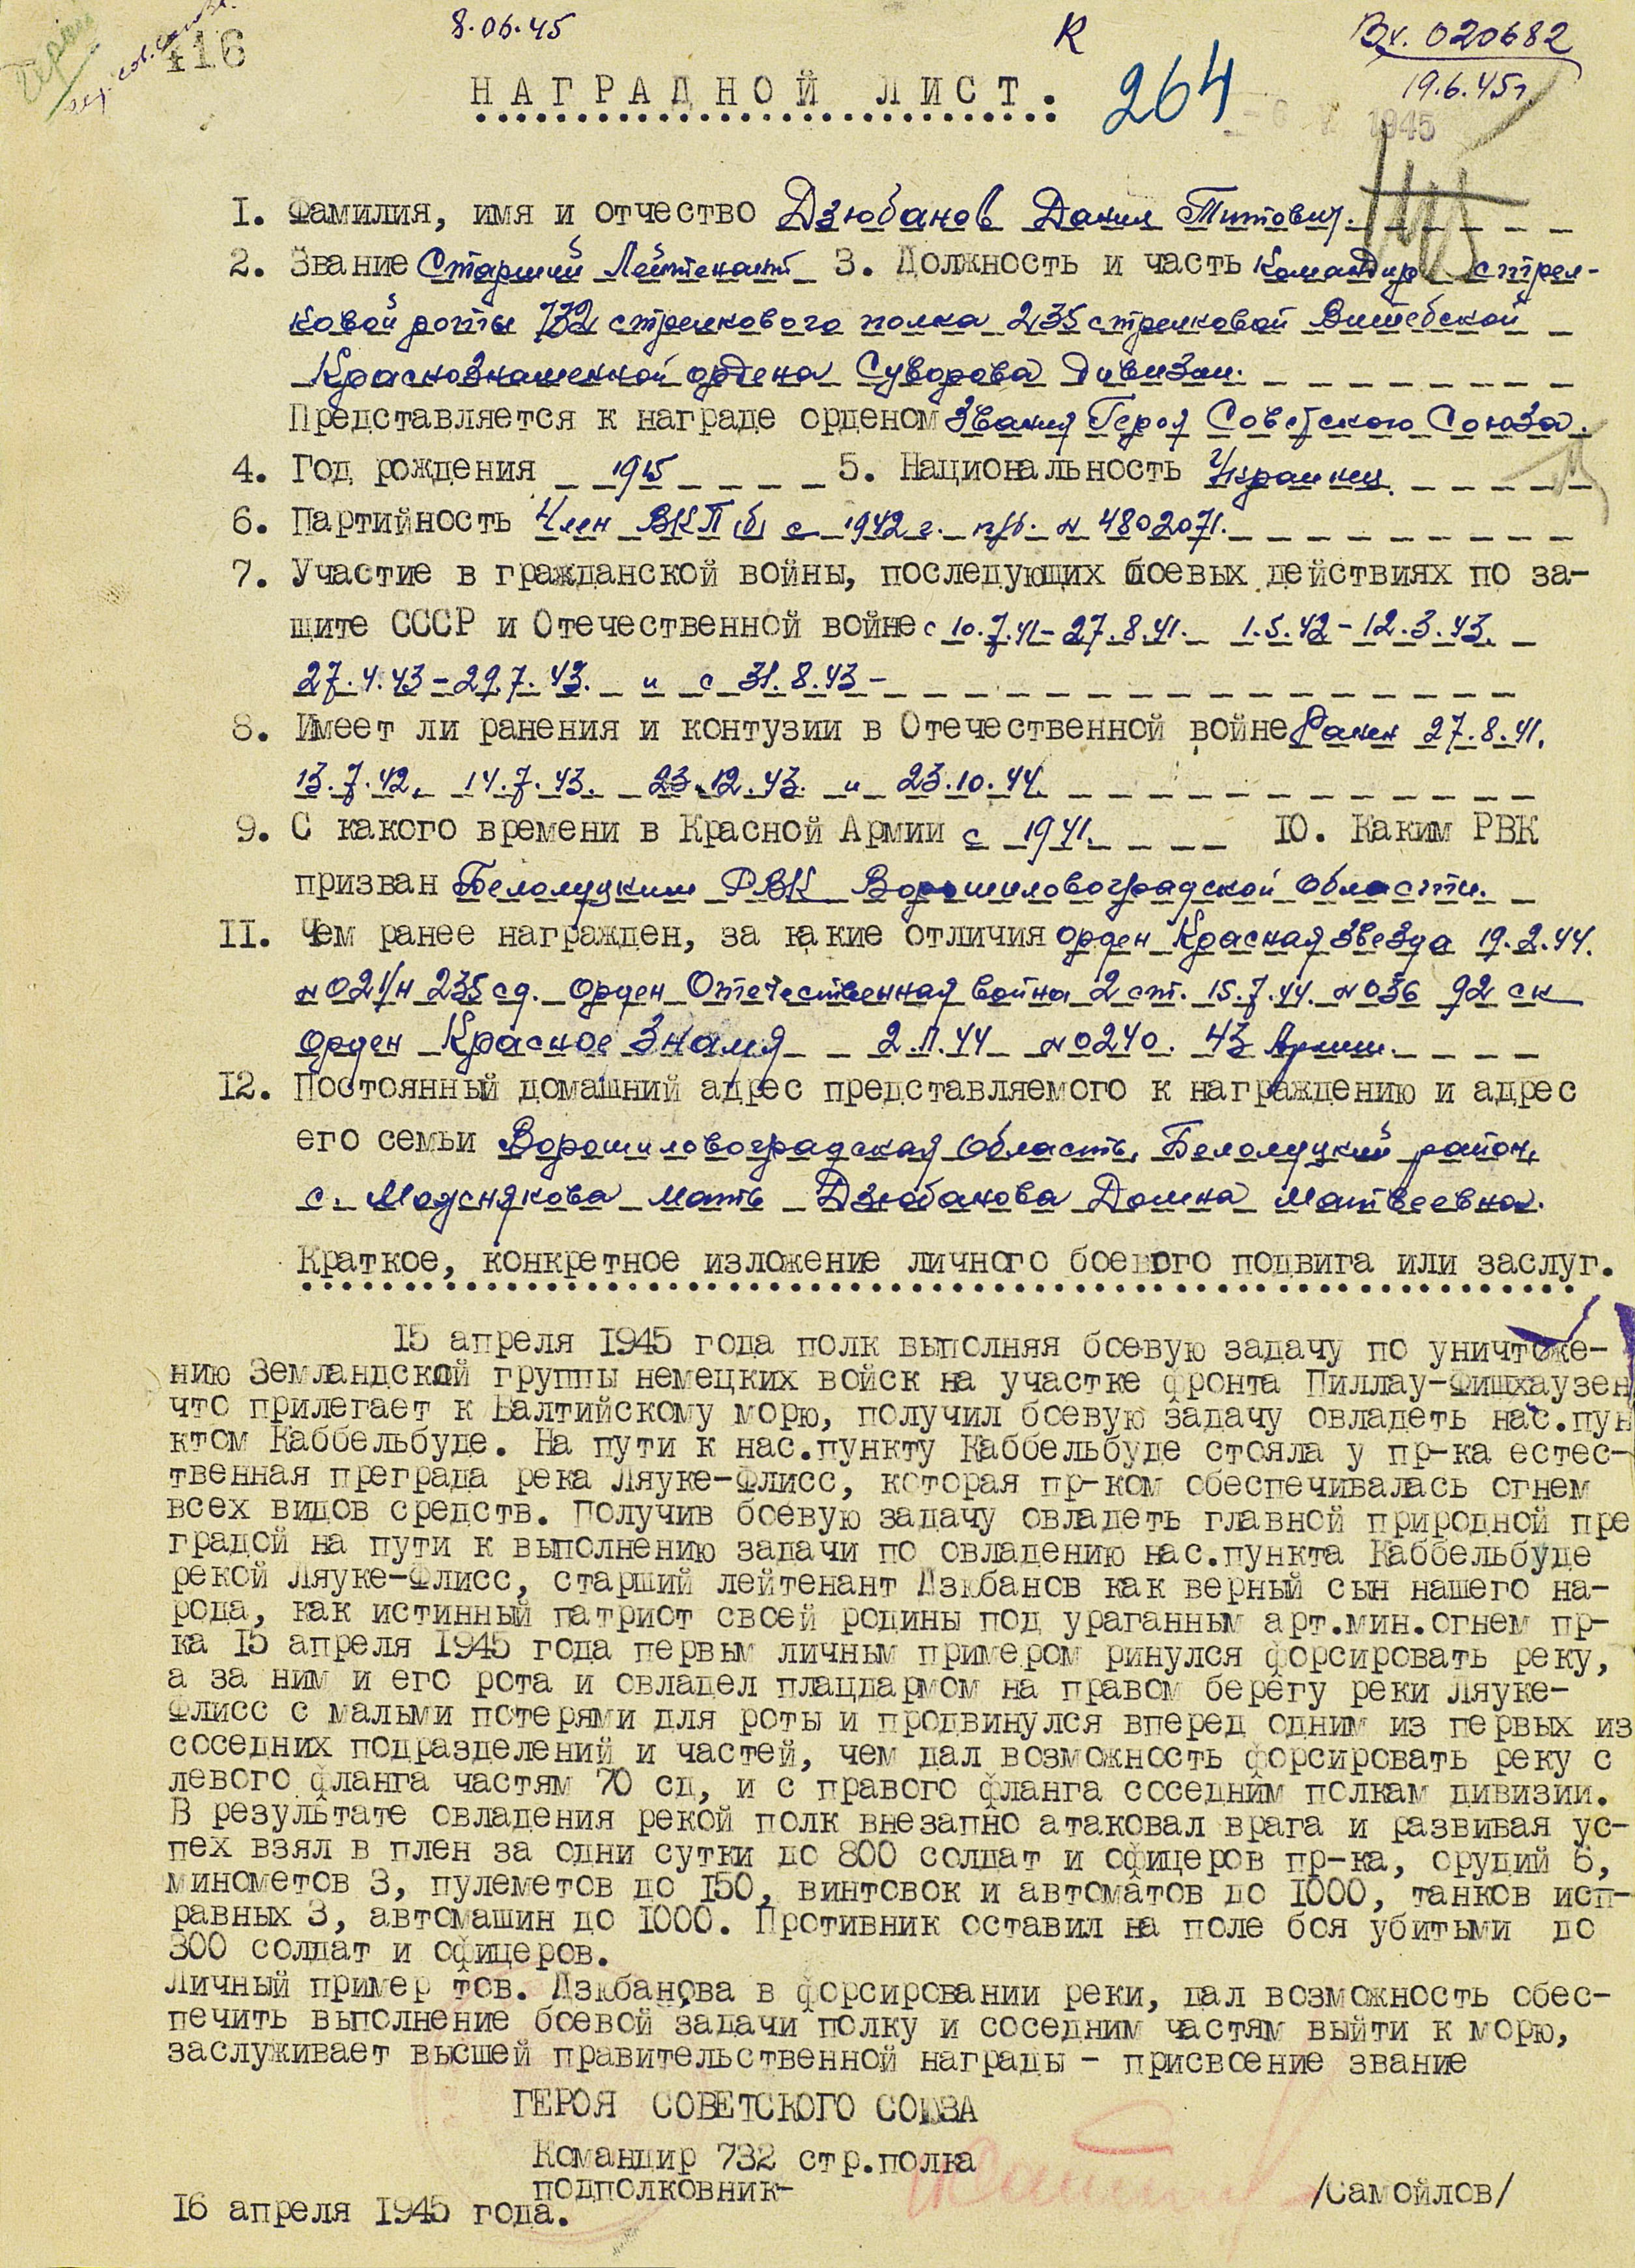 416
8.06.45
К
Вх. 020682
19.6.45г.
НАГРАДНОЙ ЛИСТ.
264
1945
I. Фамилия, имя и отчество Дзюбанов Данил Титович.
2. Звание Старший Лейтенант 3. Должность и часть Командир стрел-
ковой роты 732 стрелкового полка 235 стрелковой Витебской
Краснознаменной ордена Суворова дивизии.
Представляется к награде орденом Звания Героя Советского Союза.
4. Год рождения 1915 5. Национальность Украинец.
6. Партийность Член ВКП(б) с 1942 г. п/б. N 4802071.
7. Участие в гражданской войны, последующих боевых действиях по за-
щите СССР и Отечественной войне с 10.7.41-27.8.41. 1.5.42-12.3.43.
27.4.43-29.7.43. и с 31.8.43-
8. Имеет ли ранения и контузии в Отечественной войне Ранен 27.8.41.
13.7.42. 14.7.43. 23.12.43. и 23.10.44.
9. С какого времени в Красной Армии с 1941. IO. Каким РВК
призван Белолуцким РВК Ворошиловоградской области.
II. Чем ранее награжден, за какие отличия орден Красная Звезда 19.2.44.
N 021/н 235 сд. Орден Отечественная война 2 ст. 15.7.44. N 036 92 ск
орден Красное Знамя 2.11.44 N 0240. 43 Армии.
I2. Постоянный домашний адрес представляемого к награждению и адрес
его семьи Ворошиловоградская Область, Белолуцкий район,
с. мать Дзюбанова Домна Матвеевна.
Краткое, конкретное изложение личного боевого подвига или заслуг.
I5 апреля I945 года полк выполняя боевую задачу по уничтоже-
нию Земландской группы немецких войск на участке фронта Пиллау-Фишхаузен
что прилегает к Балтийскому морю, получил боевую задачу овладеть нас.пун
ктом Каббельбуде. На пути к нас.пункту Каббельбуде стояла у пр-ка естес-
твенная преграда река Ляуке-Флисс, которая пр-ком обеспечивалась огнем
всех видов средств. Получив боевую задачу овладеть главной природной пре
градой на пути к выполнению задачи по овладению нас.пункта Каббельбуде
рекой Ляуке-Флисс, старший лейтенант Дзюбанов как верный сын нашего на-
рода, как истинный патриот своей родины под ураганным арт.мин.огнем пр-
ка I5 апреля I945 года первым личным примером ринулся форсировать реку,
а за ним и его рота и овладел плацдармом на правом берегу реки Ляуке-
Флисс с малыми потерями для роты и продвинулся вперед одним из первых из
соседних подразделений и частей, чем дал возможность форсировать реку с
левого фланга частям 70 сд, и с правого фланга соседним полкам дивизии.
В результате овладения рекой полк внезапно атаковал врага и развивая ус-
пех взял в плен за одни сутки до 800 солдат и офицеров пр-ка, орудий 6,
минометов 3, пулеметов до I50, винтовок и автоматов до I000, танков исп-
равных 3, автомашин до I000. Противник оставил на поле боя убитыми до
300 солдат и офицеров.
Личный пример тов. Дзюбанова в форсировании реки, дал возможность обес-
печить выполнение боевой задачи полку и соседним частям выйти к морю,
заслуживает высшей правительственной награды - присвоение звание
ГЕРОЯ СОВЕТСКОГО СОЮЗА
Командир 732 стр.полка
подполковник-
/Самойлов/
I6 апреля I945 года.